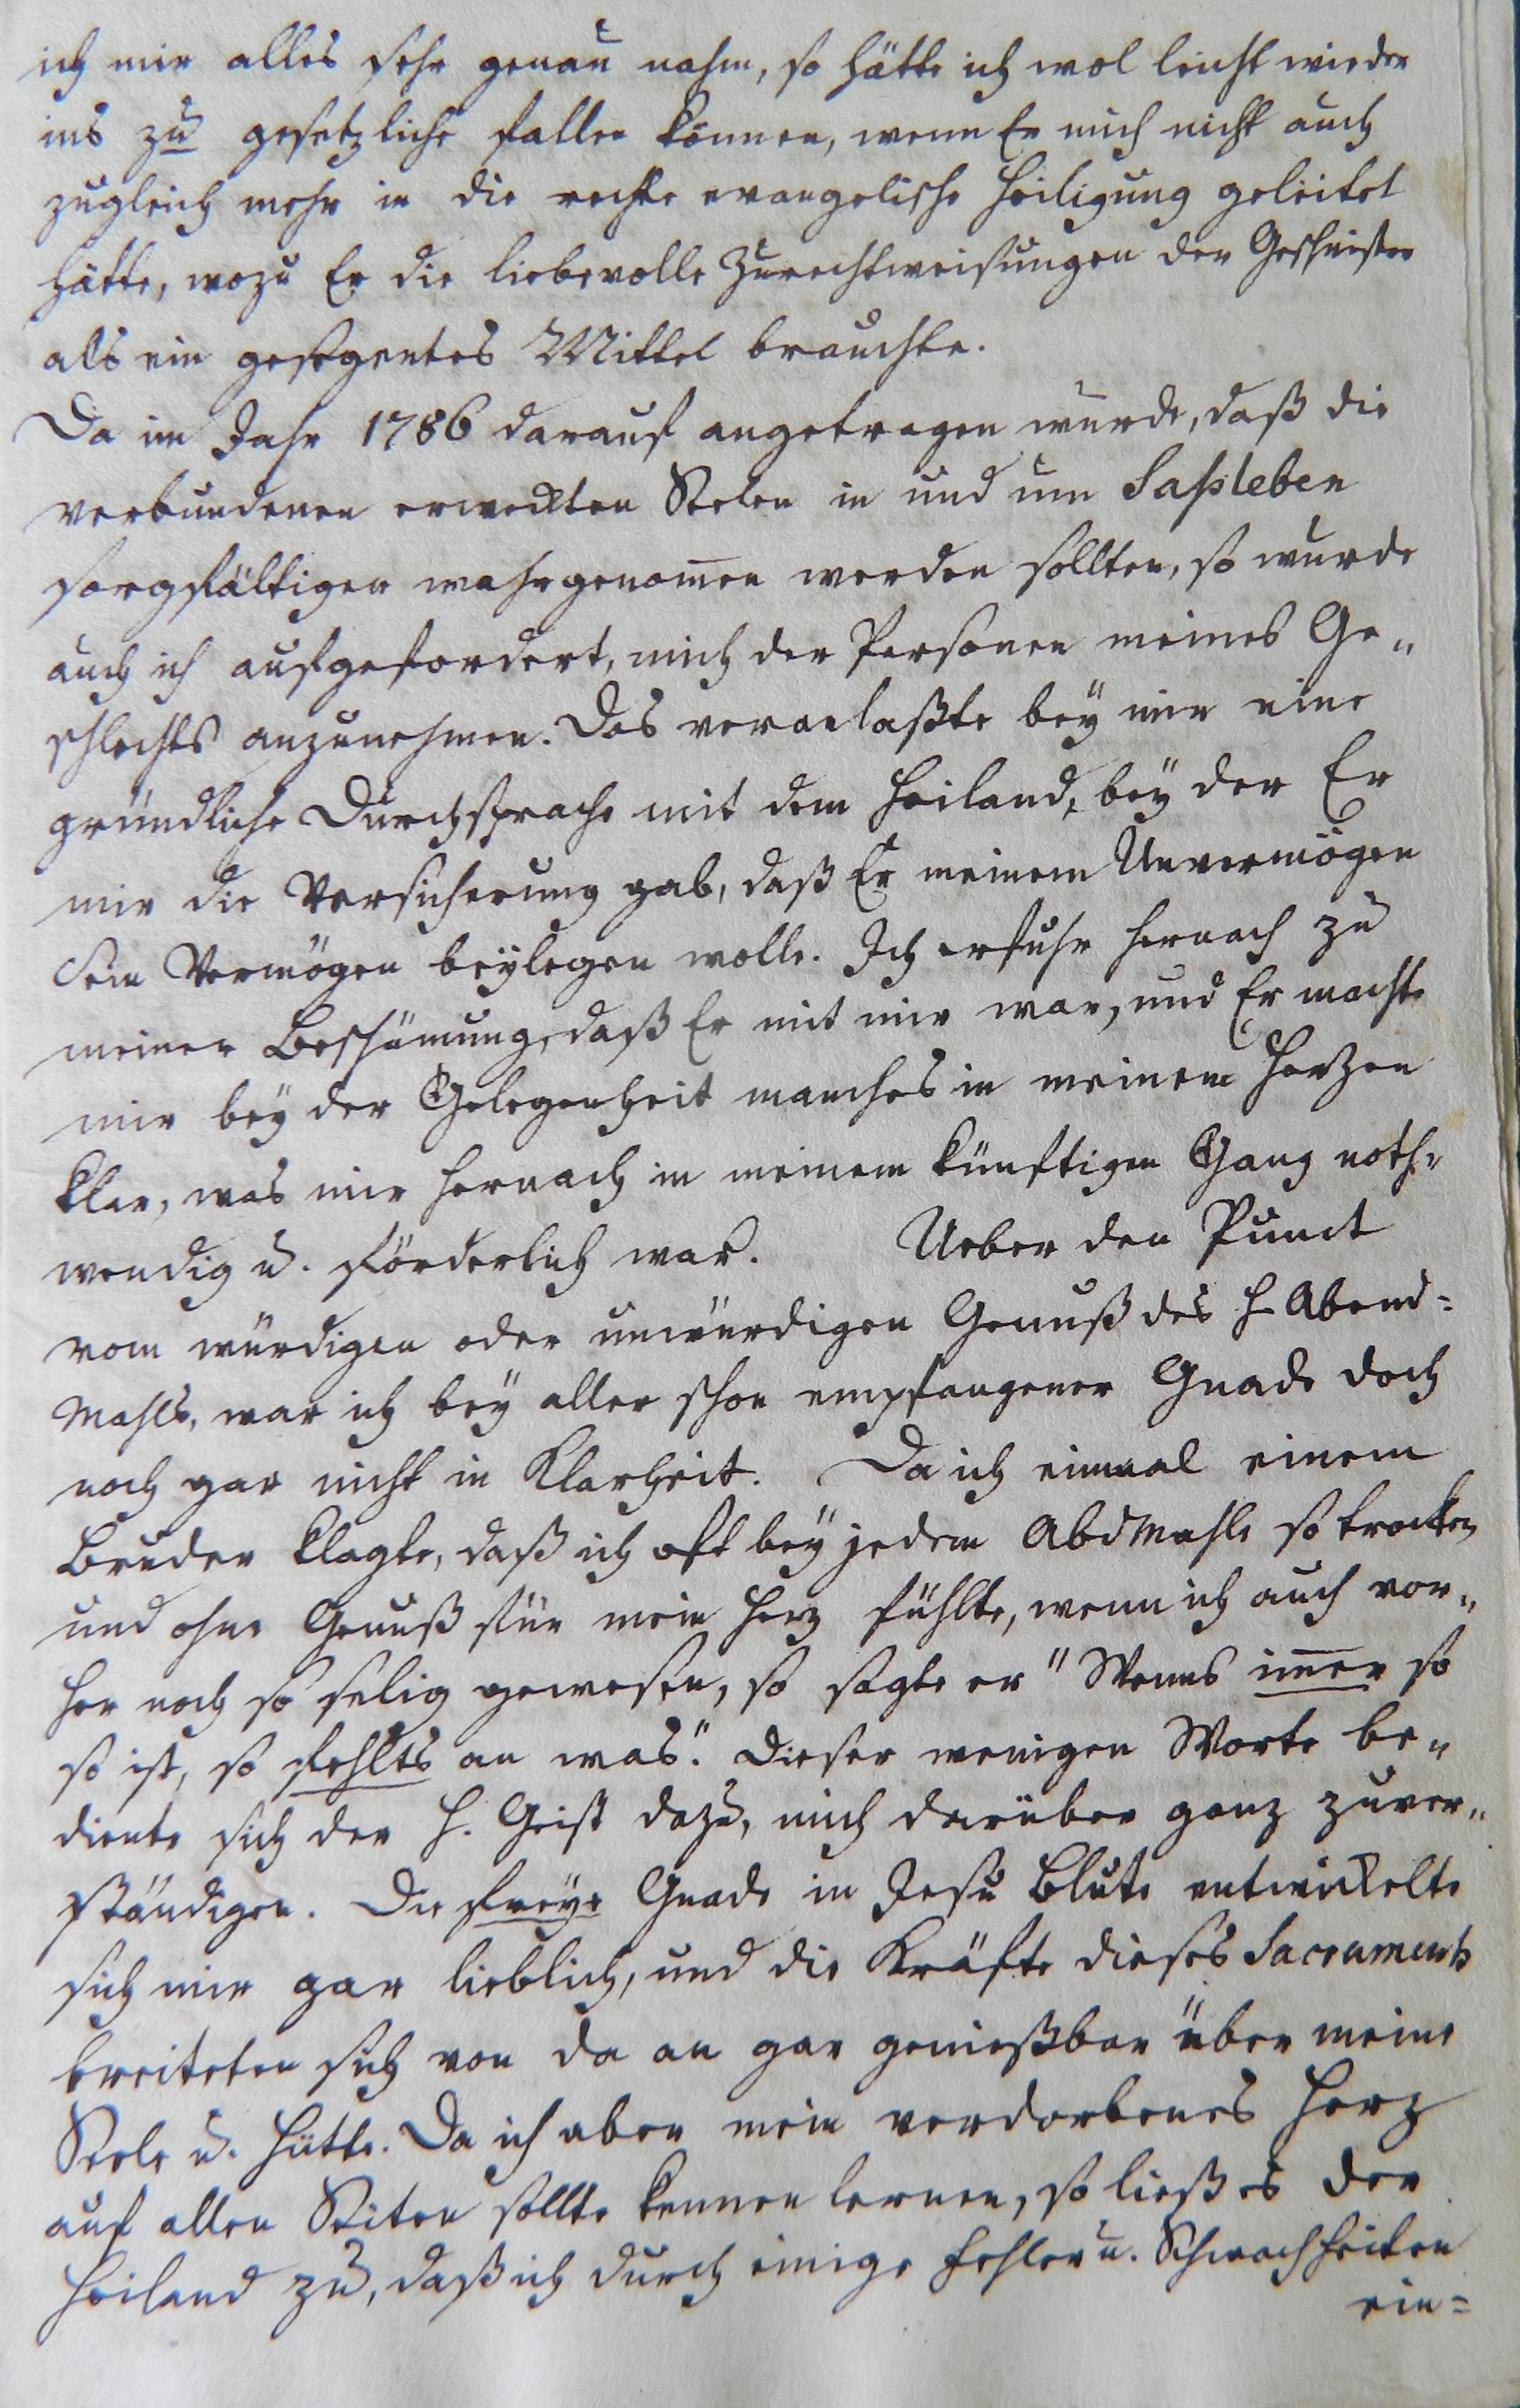 ich mir alles sehr genau nahm, so hätte ich wol leicht wieder
ins zu gesetzliche fallen können, wenn Er mich nicht auch
zugleich mehr in die rechte evangelische Heiligung geleitet
hätte, wozu Er die liebevolle Zurechtweisungen der Geschwister
als ein gesegentes Mittel brauchte.
Da im Jahr 1786 darauf angetragen wurde, daß die
verbundenen erweckten Seelen in und um Saßleben
sorgfältiger wahrgenom̅en werden sollten, so wurde
auch ich aufgefordert, mich der Personen meines Ge„
schlechts anzunehmen. Das veranlaßte bey mir eine
gründliche Durchsprache mit dem Heiland, bey der Er
mir die Versicherung gab, daß Er meinem Unvermögen
Sein Vermögen beylegen wolle. Ich erfuhr hernach zu
meiner Beschämung, daß Er mit mir war, und Er machte
mir bey der Gelegenheit manches in meinem Herzen
klar, was mir hernach in meinem künftigen Gang noth„
wendig u. förderlich war. Ueber den Punct
vom würdigen oder unwürdigen Genuß des H. Abend=
Mahls, war ich bey aller schon empfangener Gnade doch
noch gar nicht in Klarheit. Da ich einmal einem
Bruder klagte, daß ich oft bey jedem AbdMahle so trocken
und ohne Genuß für mein Herz fühlte, wenn ich auch vor„
her noch so selig gewesen, so sagte er "Wenns im̅er so
so ist, so fehlts an was". Dieser wenigen Worte be„
diente sich der H. Geist dazu, mich darüber ganz zuver„
ständigen. Die freye Gnade in Jesu Blute entwickelte
sich mir gar lieblich, und die Kräfte dieses Sacraments
breiteten sich von da an gar genießbar über meine
Seele u. Hütte. Da ich aber mein verdorbenes Herz
auf allen Seiten sollte kennen lernen, so ließ es der
Heiland zu, daß ich durch einige Fehler u. Schwachheiten
ein=